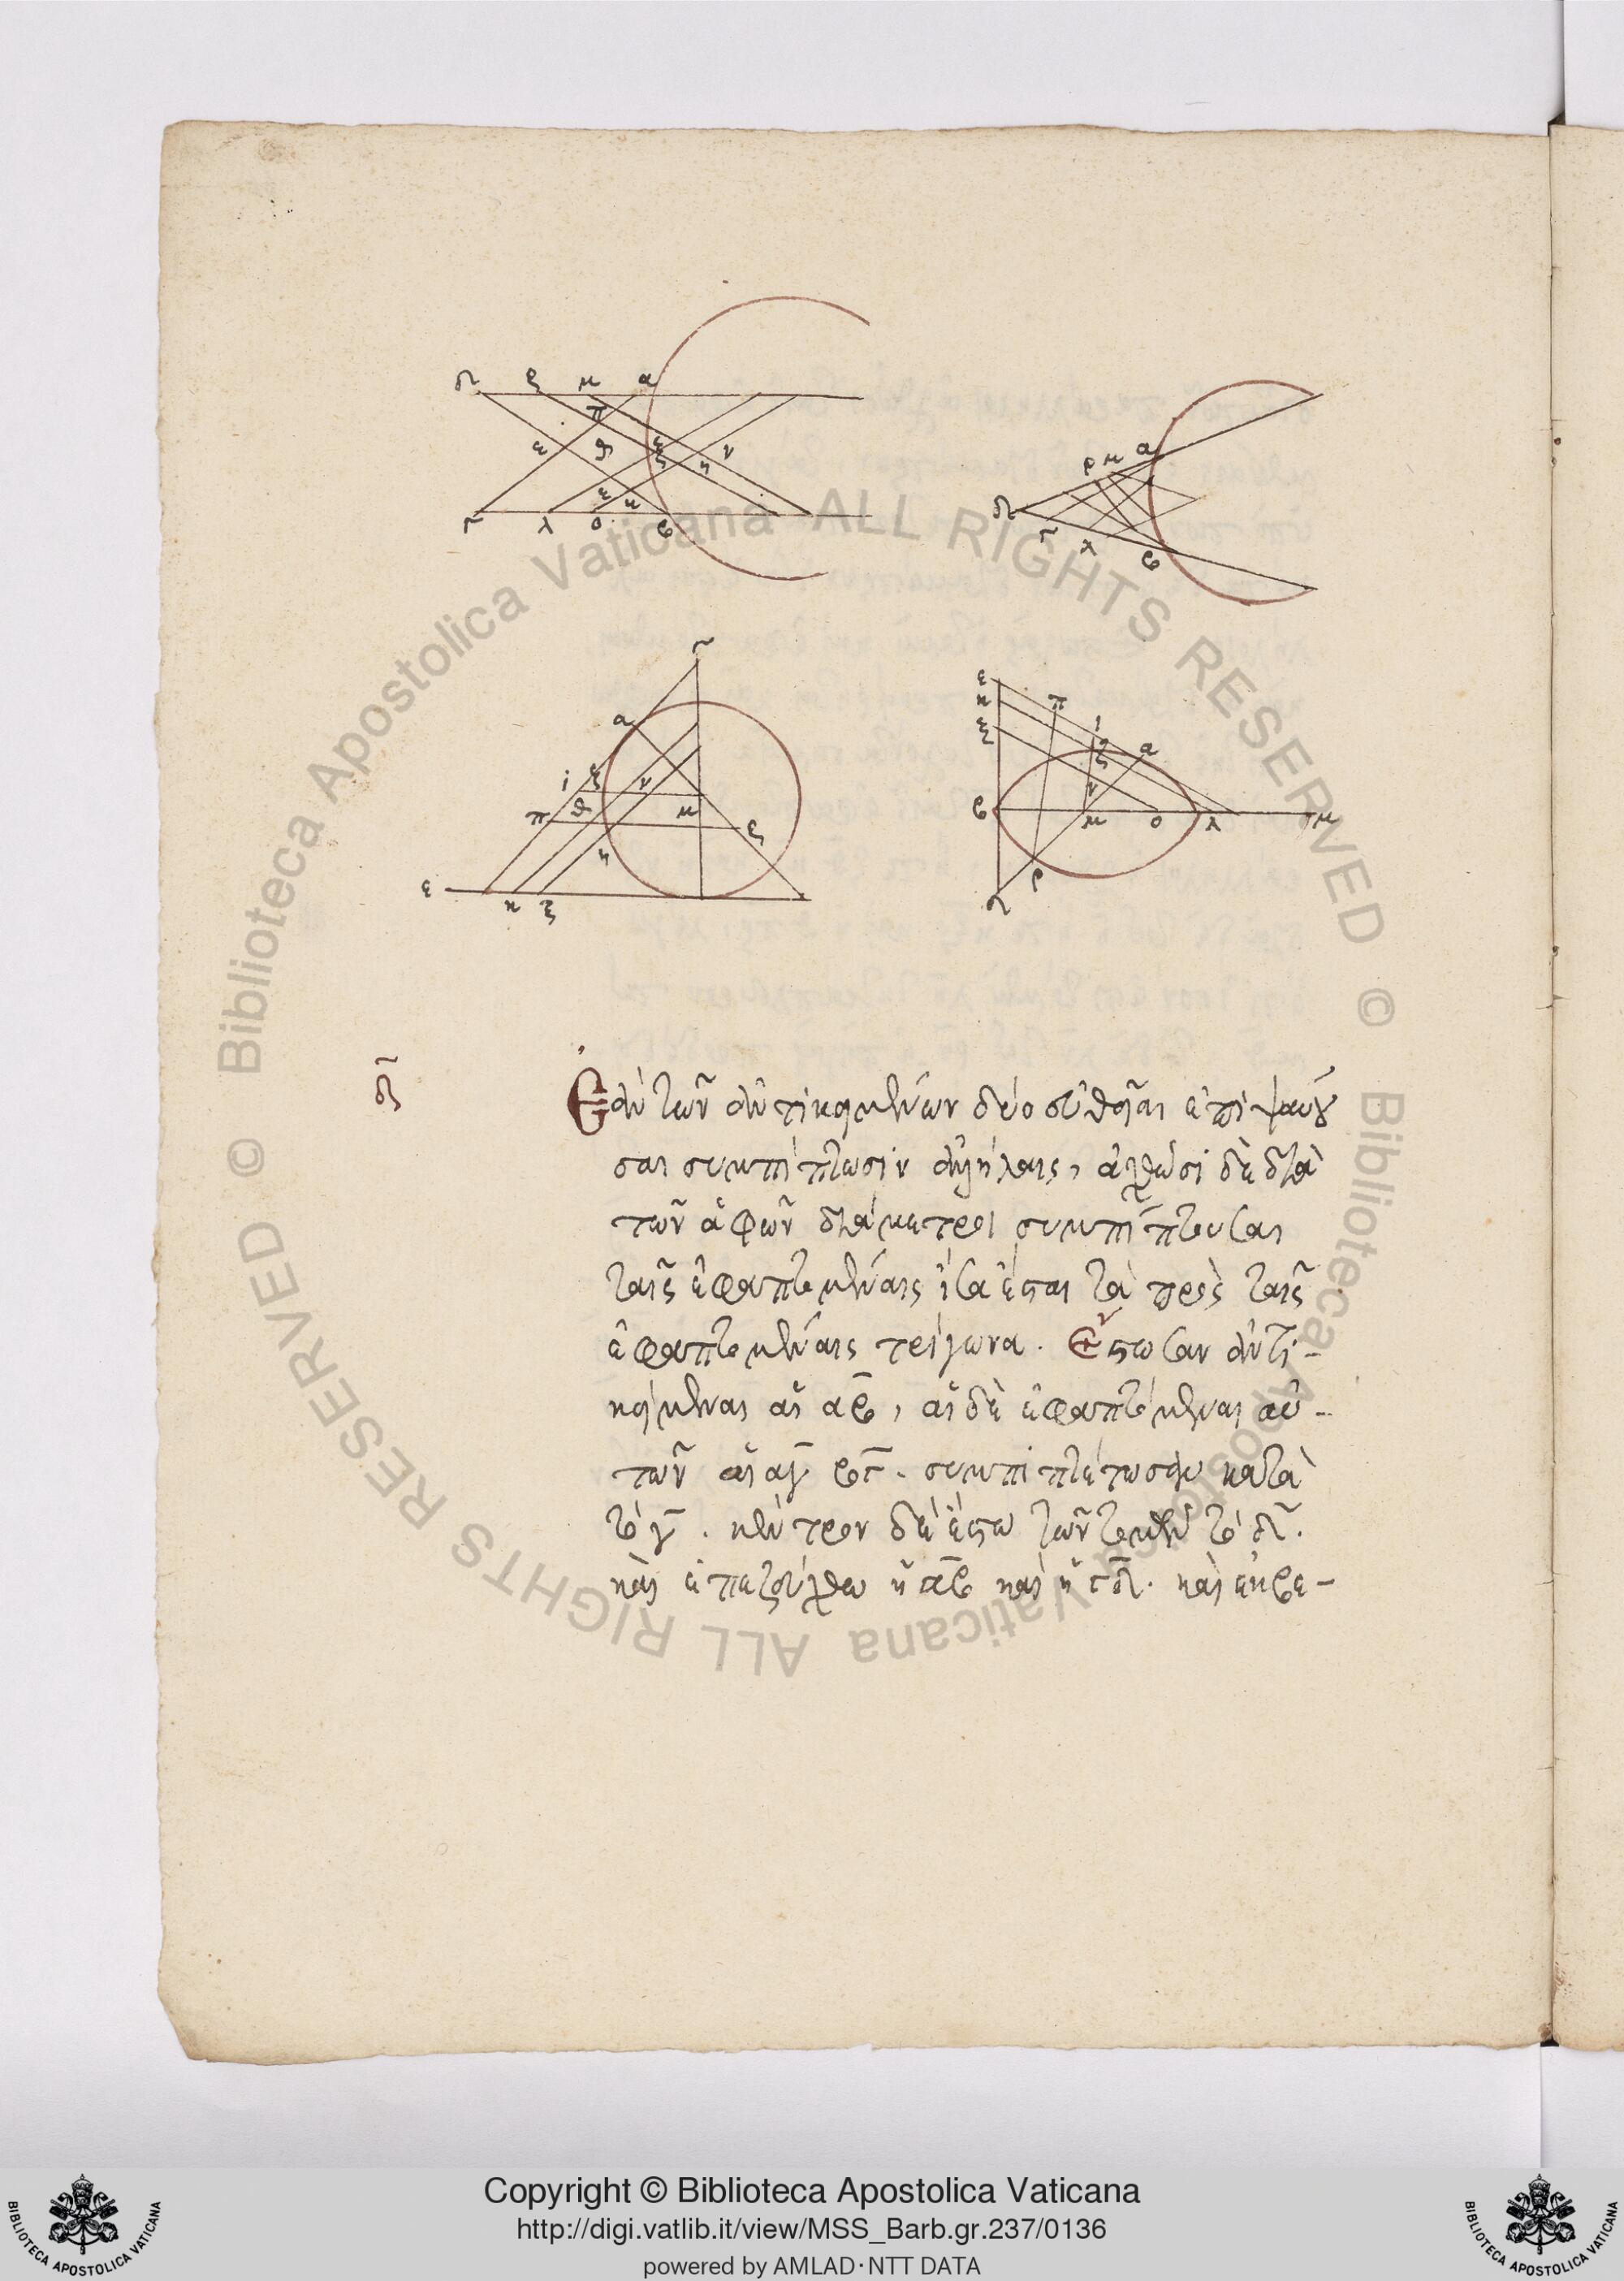 δ ρ μ α
π
ε θ ξ ζ η ν
ε κ
γ λ ο β
α
ρ μ
δ
γ λ β
γ
α
ι ξ ν
π θ μ ρ
η
ε κ ξ
ε
κ π
ξ ι ζ α
ν
β μ ο λ μ
ρ
δ
δ̄
Ἐὰν τῶν ἀντικειμένων δύο εὐθεῖαι ἐπιψαύου
σαι συμπίπτωσιν ἀλλήλαις, ἀχθῶσι δὲ διὰ
τῶν ἁφῶν διάμετροι συμπίπτουσαι
ταῖς ἐφαπτομέναις ἴσα ἔσται τὰ πρὸς ταῖς
ἐφαπτομέναις τρίγωνα. Ἔστωσαν ἀντι-
κείμεναι αἱ αβ, αἱ δὲ ἐφαπτόμεναι αὐ-
τῶν αἱ αγ βγ. συμπιπτέτωσαν κατὰ
τὸ γ. κέντρον δὲ ἔστω τῶν τομῶν τὸ δ.
καὶ ἐπεζεύχθω ἡ αβ καὶ ἡ γδ. καὶ ἐκβε-
© Biblioteca Apostolica Vaticana ALL RIGHTS RESERVED
© Biblioteca Apostolica Vaticana ALL RIGHTS RESERVED
Copyright © Biblioteca Apostolica Vaticana
http://digi.vatlib.it/view/MSS_Barb.gr.237/0136
powered by AMLAD·NTT DATA
BIBLIOTECA APOSTOLICA VATICANA
BIBLIOTECA APOSTOLICA VATICANA